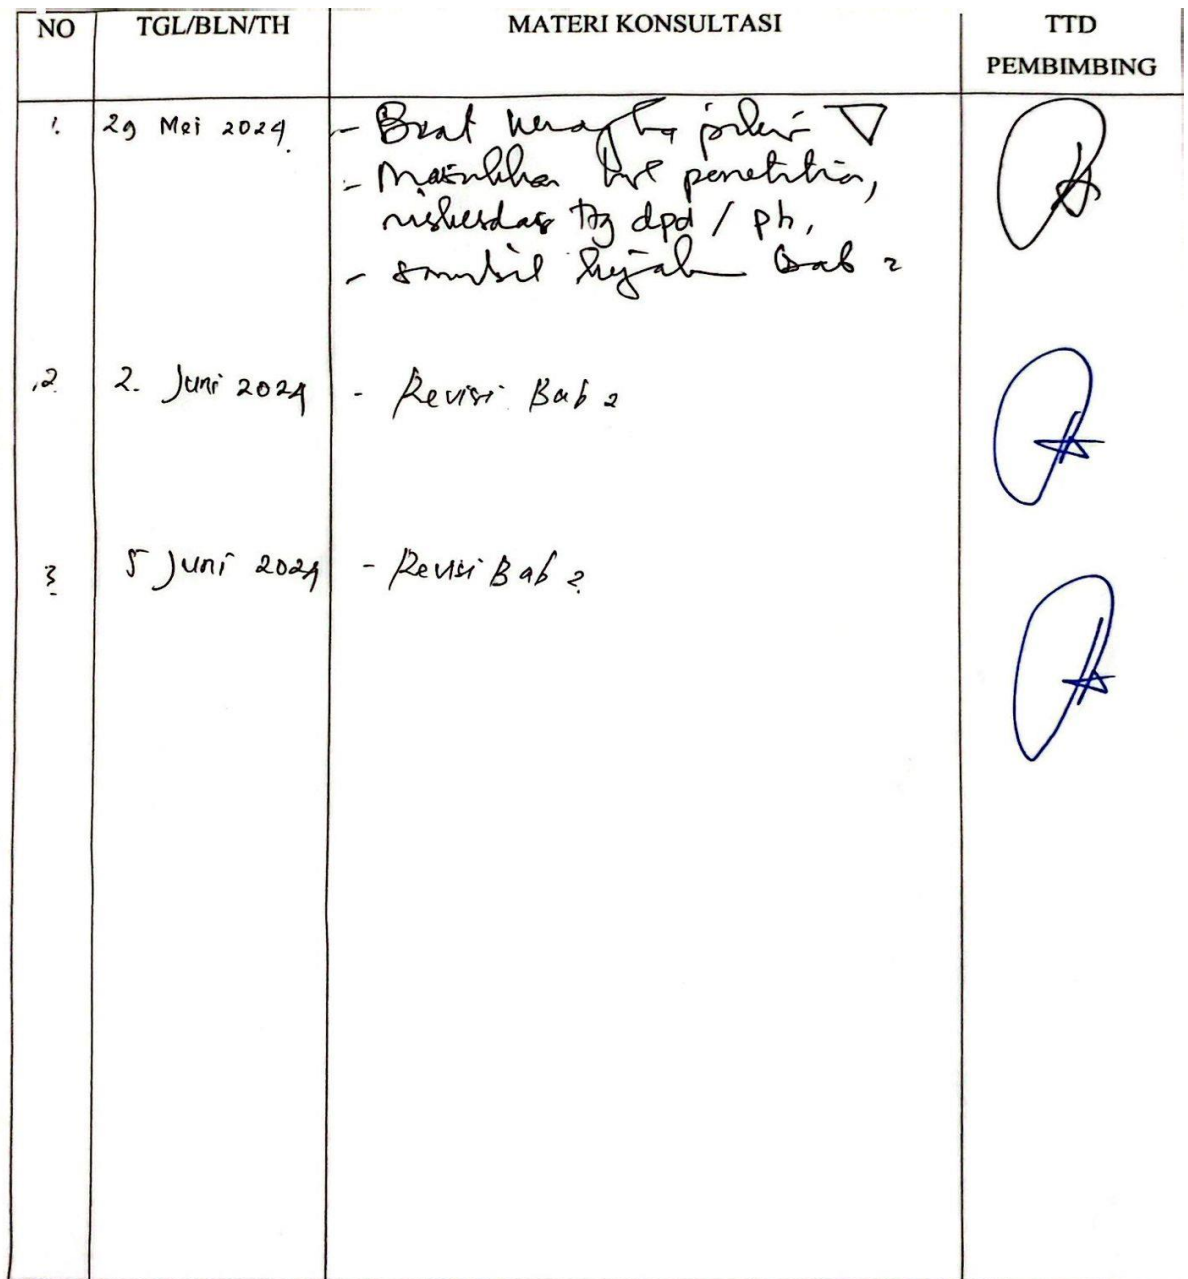 NO TGL/BLN/TH MATERI KONSULTASI TTD
PEMBIMBING
1. 29 Mei 2024 - Buat kerangka pikir ▽
- Masukkan penelitian,
riskesdas ttg dpd / ph,
- sambil kerjakan Bab 2
2. 2. Juni 2024 - Revisi Bab 2
3 5 Juni 2024 - Revisi Bab 2